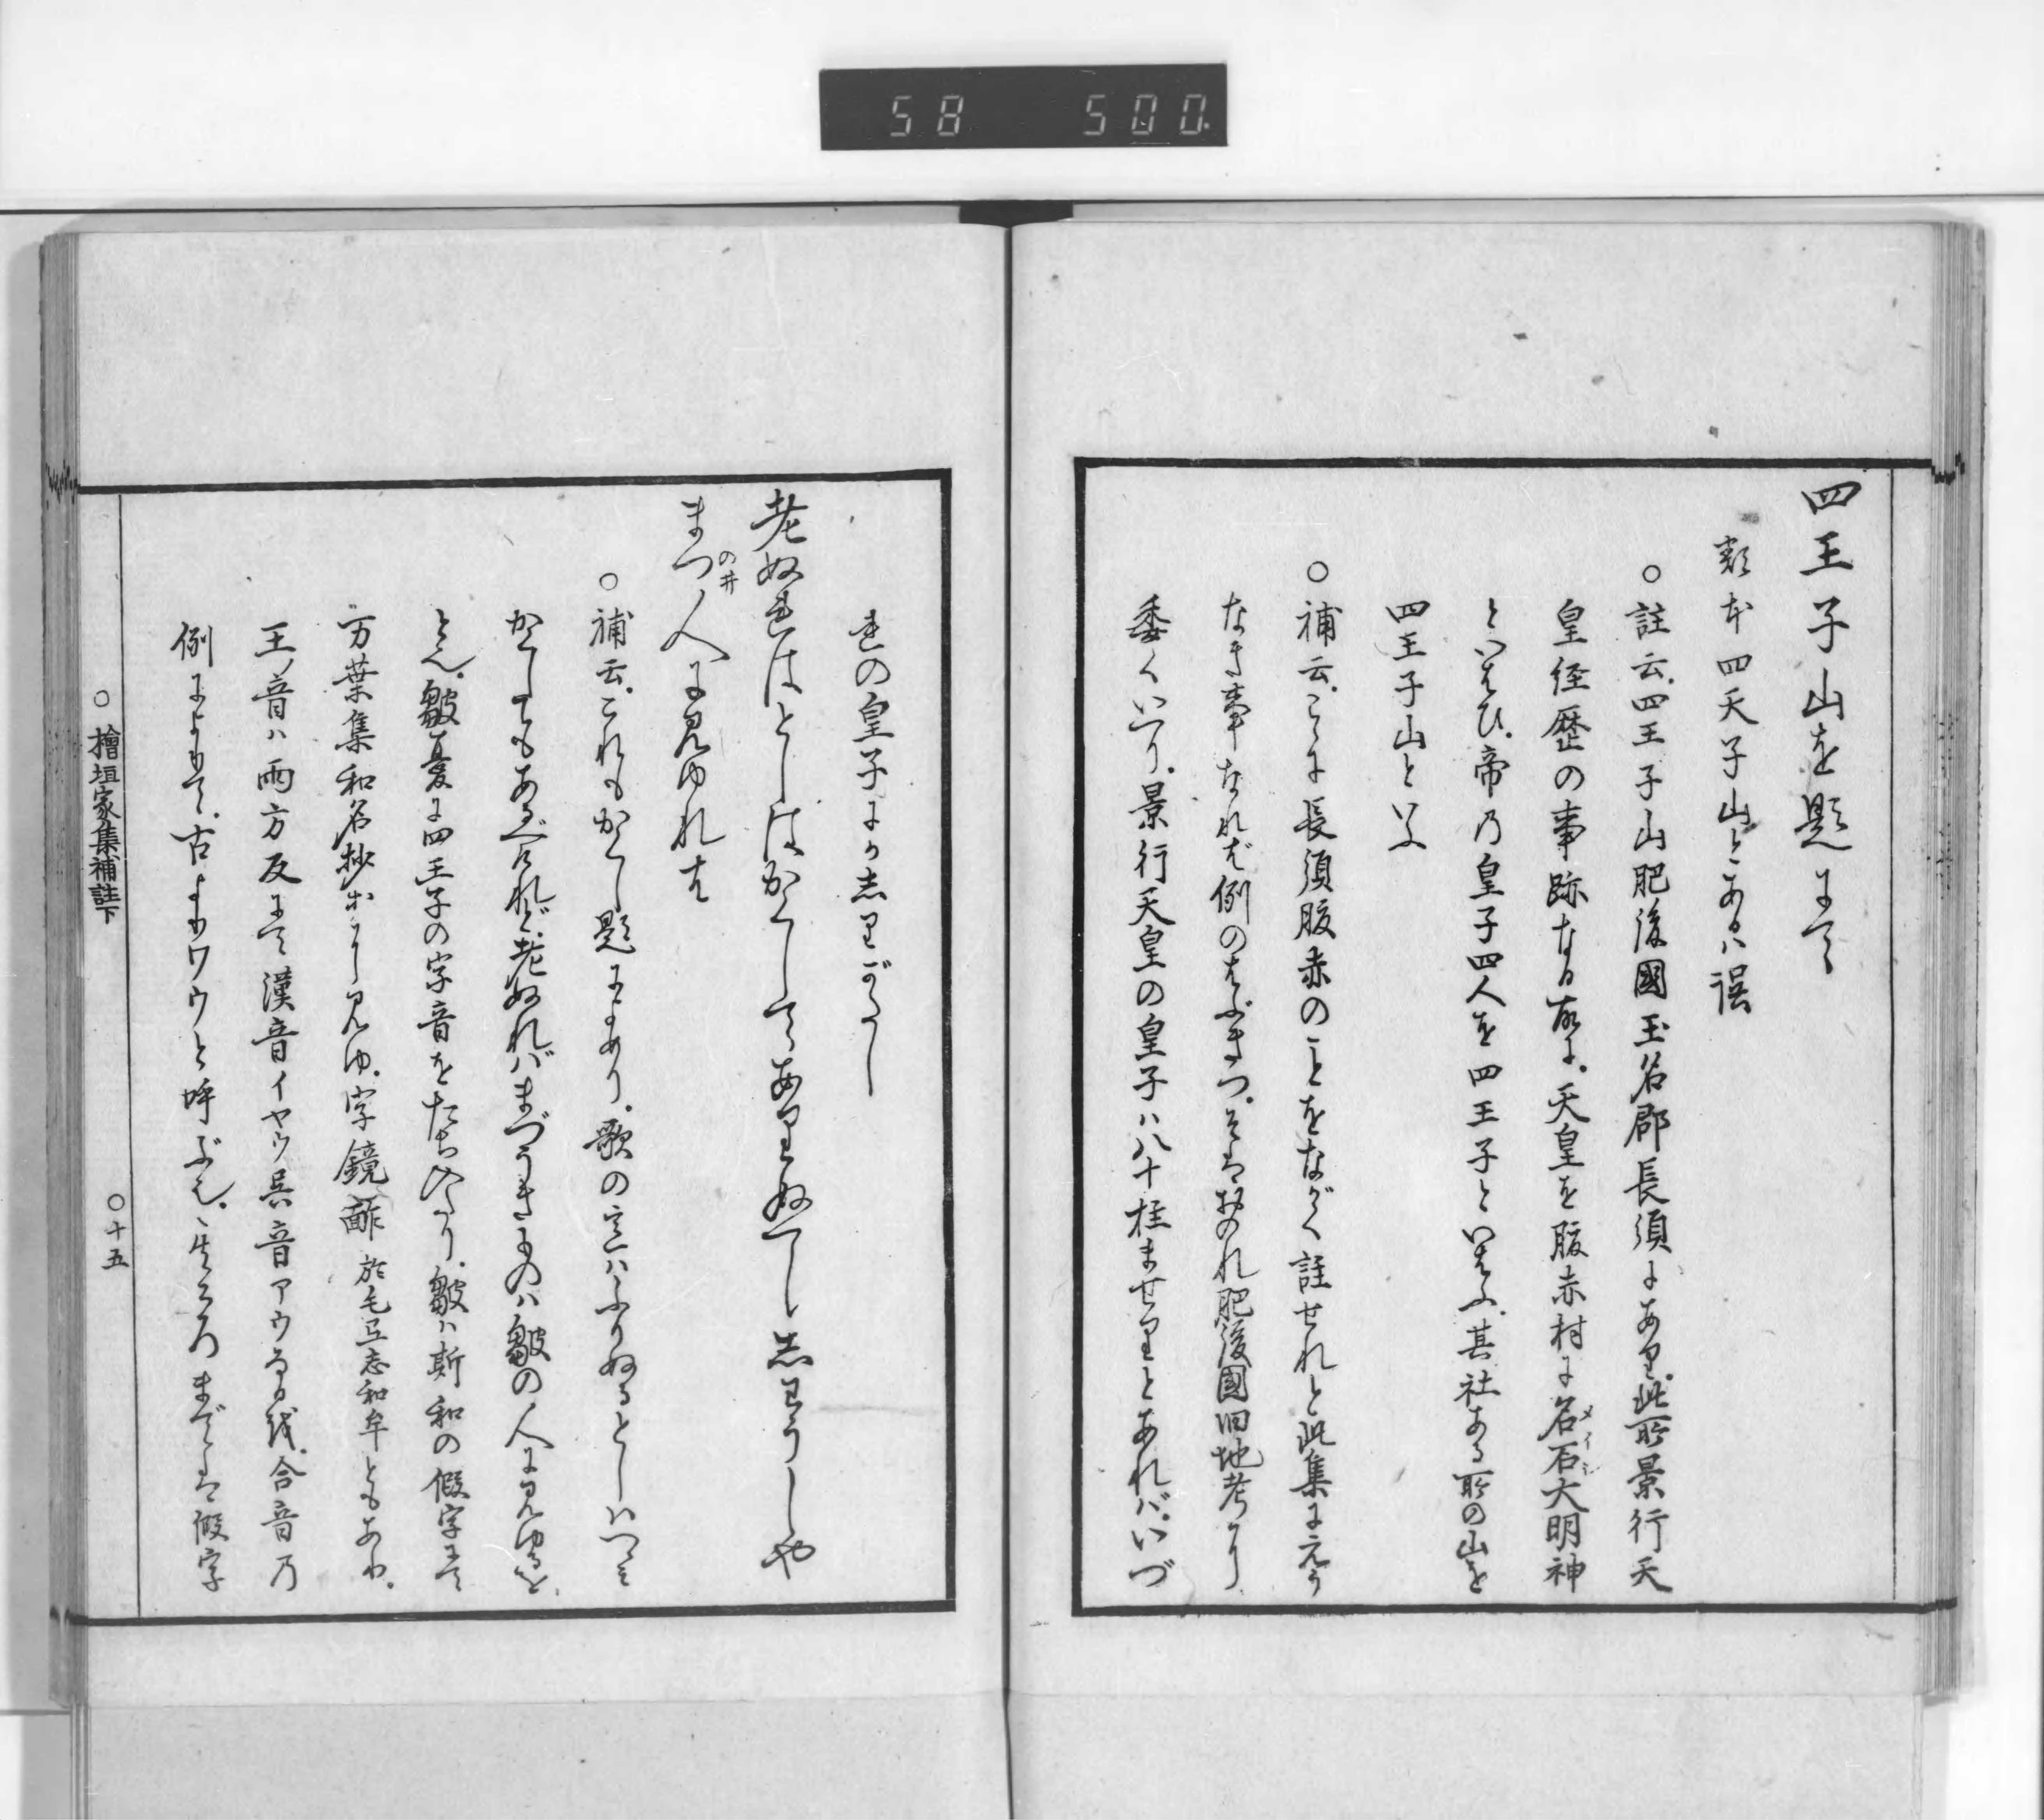 58 500.
四王子山を題にて
類本四天子山とあるハ誤
○註云四王子山肥後國玉名郡長須にあり此所景行天
皇経歴の事跡なる故に天皇を腹赤村に名石大明神
メイシ
といはひ帝乃皇子四人を四王子といはふ其社ある所の山を
四王子山といふ
○補云こゝに長須腹赤のことをながく註せれと此集に元より
なき事なれば例のはぶきつそはおのれ肥後國旧地考に
委くいへり景行天皇の皇子ハ八十柱ませりとあれバいづ
れの皇子にか志りがたし
老ぬればとしはかくしてありぬてし志わうしや
まつ人に見ゆれは
の井
○補云これもかくし題にあり歌の意ハふりぬるとしハつゝみ
かくしてもあるべけれど老ぬれバまづうきものハ皺の人に見ゆるを
とん皺憂に四王子の字音をたちいれたり皺ハ斯和の假字にて
万葉集和名抄等に見ゆ字鏡皻於毛互志和牟ともあり
王ノ音ハ雨方反にて漢音イヤウ呉音アウなる我合音乃
例によりて古よりワウと呼ぶ也
までは假字
○檜垣家集補註下
○十五